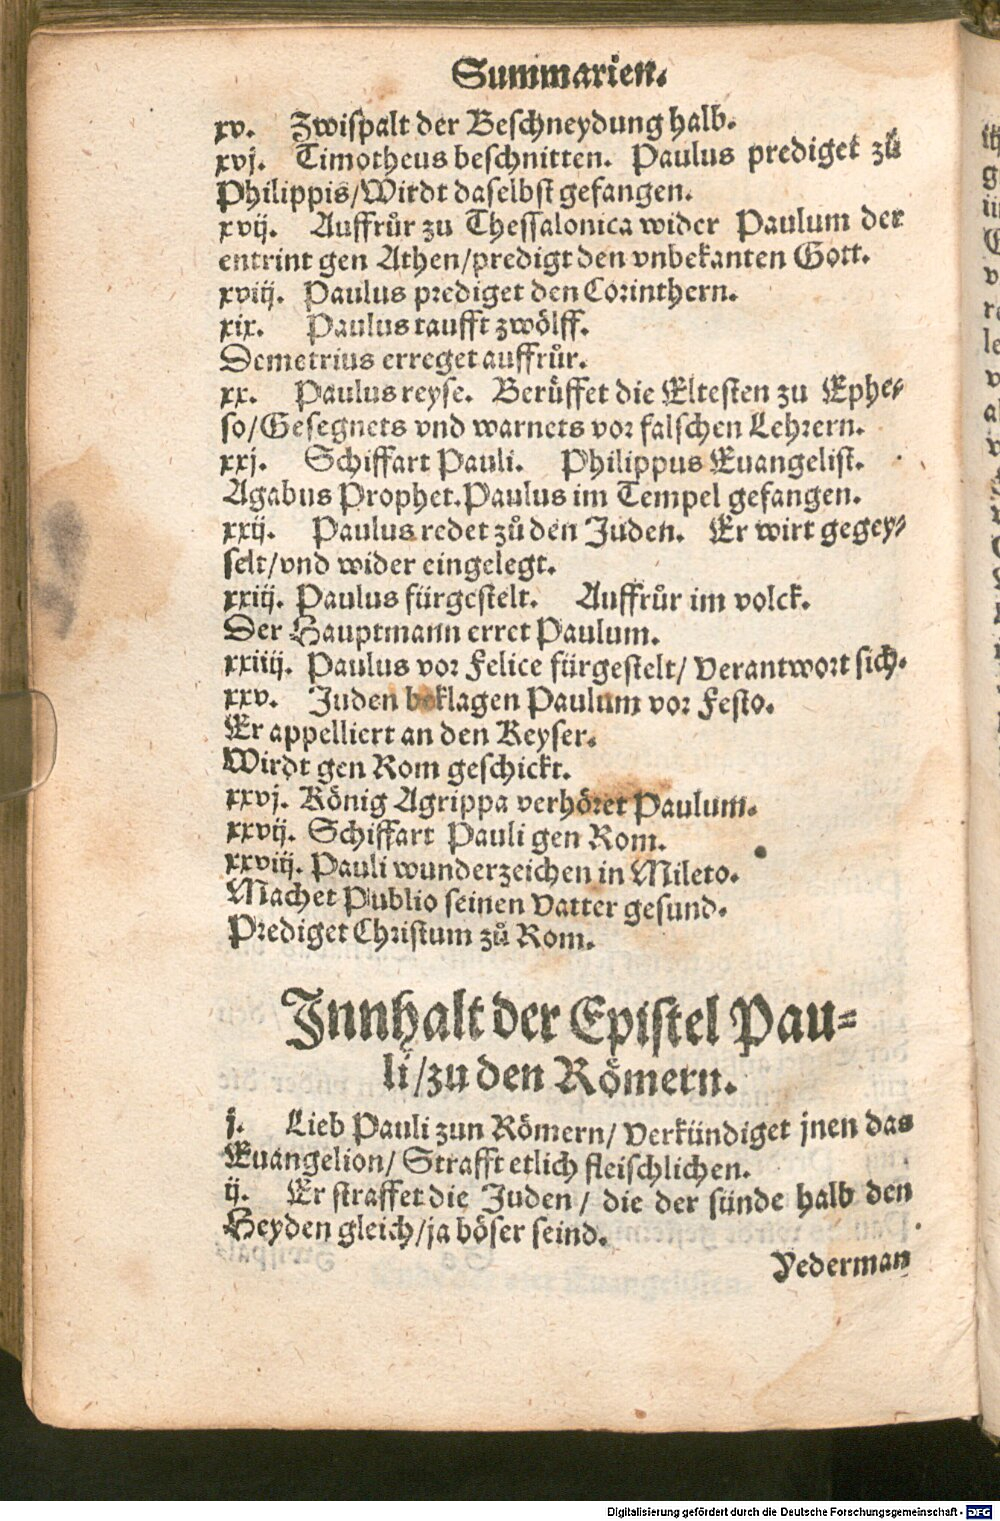 Summarien.
xv. Zwispalt der Beschneydung halb.
xvj. Timotheus beschnitten. Paulus prediget zů
Philippis/Wirdt daselbst gefangen.
xvij. Auffrůr zu Thessalonica wider Paulum der
entrint gen Athen/predigt den vnbekanten Gott.
xviij. Paulus prediget den Corinthern.
xix. Paulus taufft zwölff.
Demetrius erreget auffrůr.
xx. Paulus reyse. Berüffet die Eltesten zu Ephe-
so/Gesegnets vnd warnets vor falschen Lehrern.
xxj. Schiffart Pauli. Philippus Euangelist.
Agabus Prophet. Paulus im Tempel gefangen.
xxij. Paulus redet zů den Juden. Er wirt gegey-
selt/vnd wider eingelegt.
xxiij. Paulus fürgestelt. Auffrůr im volck.
Der Hauptmann erret Paulum.
xxiiij. Paulus vor Felice fürgestelt/ verantwort sich.
xxv. Juden beklagen Paulum vor Festo.
Er appelliert an den Keyser.
Wirdt gen Rom geschickt.
xxvj. König Agrippa verhöret Paulum.
xxvij. Schiffart Pauli gen Rom.
xxviij. Pauli wunderzeichen in Mileto.
Machet Publio seinen Vatter gesund.
Prediget Christum zů Rom.
Innhalt der Epistel Pau-
li/zu den Römern.
j. Lieb Pauli zun Römern/ verkündiget jnen das
Euangelion/ Strafft etlich fleischlichen.
ij. Er straffet die Juden/ die der sünde halb den
Heyden gleich/ja böser seind.
Yederman
Digitalisierung gefördert durch die Deutsche Forschungsgemeinschaft - DFG